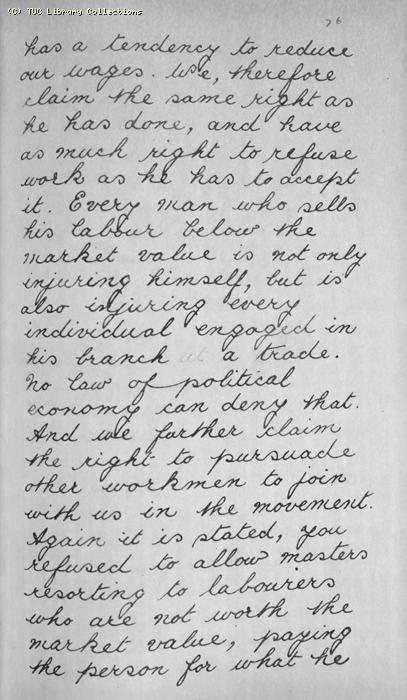 (C) TUC Library Collections
76
has a tendency to reduce
our wages. We, therefore
claim the same right as
he has done, and have
as much right to refuse
work as he has to accept
it. Every man who sells
his labour below the
market value is not only
injuring himself, but is
also injuring every
individual engaged in
his branch at a trade.
No law of political
economy can deny that.
And we further claim
the right to pursuade
other workmen to join
with us in the movement.
Again it is stated, you
refused to allow masters
resorting to labourers
who are not worth the
market value, paying
the person for what he